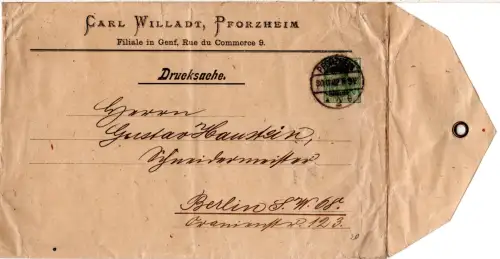 Carl Willadt, Pforzheim
Filiale in Genf, Rue du Commerce 9.
Drucksache.
Herrn
Gustav Haustein,
Schneidermeister
Berlin S.W. 68.
Oranienstr. 123.